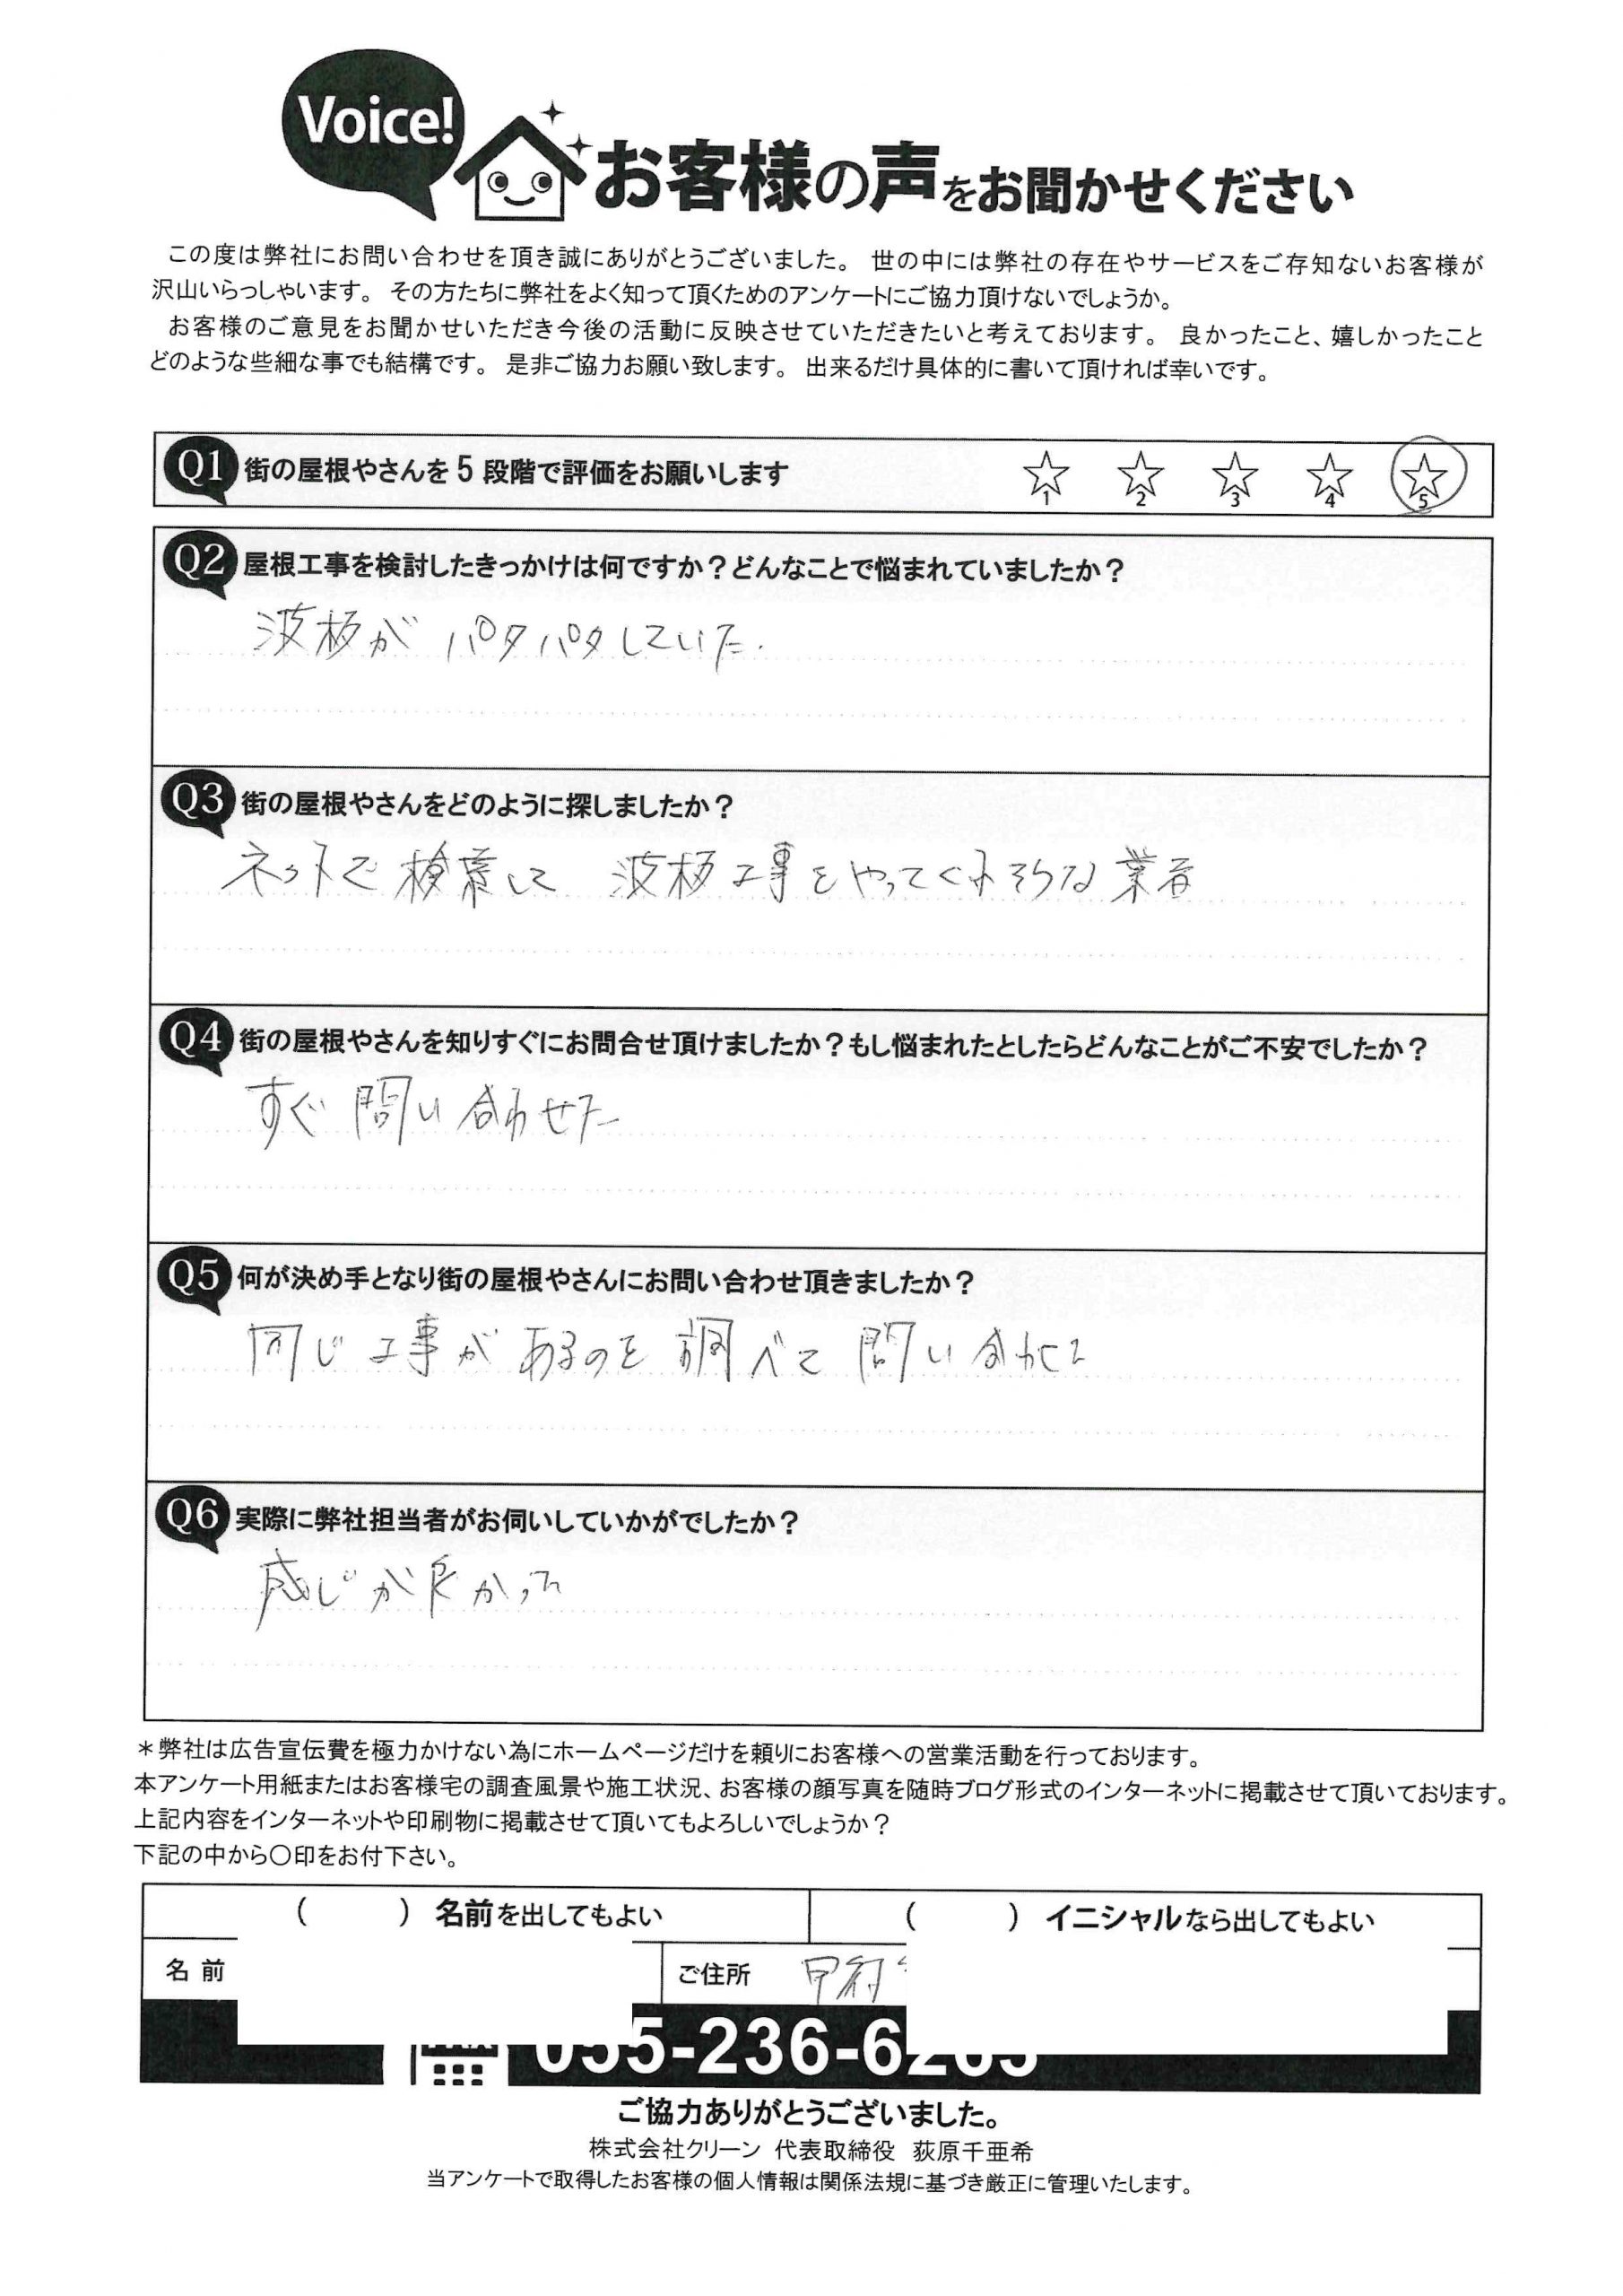 Voice!
お客様の声をお聞かせください
この度は弊社にお問い合わせを頂き誠にありがとうございました。 世の中には弊社の存在やサービスをご存知ないお客様が
沢山いらっしゃいます。 その方たちに弊社をよく知って頂くためのアンケートにご協力頂けないでしょうか。
お客様のご意見をお聞かせいただき今後の活動に反映させていただきたいと考えております。 良かったこと、嬉しかったこと
どのような些細な事でも結構です。 是非ご協力お願い致します。 出来るだけ具体的に書いて頂ければ幸いです。
Q1 街の屋根やさんを5段階で評価をお願いします ☆1 ☆2 ☆3 ☆4 ☆5
Q2 屋根工事を検討したきっかけは何ですか？どんなことで悩まれていましたか？
波板が パタパタしていた.
Q3 街の屋根やさんをどのように探しましたか？
ネットで 検索して 波板工事をやってくれそうな業者
Q4 街の屋根やさんを知りすぐにお問合せ頂けましたか？もし悩まれたとしたらどんなことがご不安でしたか？
すぐ 問い合わせた
Q5 何が決め手となり街の屋根やさんにお問い合わせ頂きましたか？
同じ工事が あるのを 調べて 問い合わせた
Q6 実際に弊社担当者がお伺いしていかがでしたか？
感じが良かった
＊弊社は広告宣伝費を極力かけない為にホームページだけを頼りにお客様への営業活動を行っております。
本アンケート用紙またはお客様宅の調査風景や施工状況、お客様の顔写真を随時ブログ形式のインターネットに掲載させて頂いております。
上記内容をインターネットや印刷物に掲載させて頂いてもよろしいでしょうか？
下記の中から〇印をお付下さい。
（　　）名前を出してもよい （　　）イニシャルなら出してもよい
名前 ご住所 甲府
055-236-6
ご協力ありがとうございました。
株式会社クリーン 代表取締役 荻原千亜希
当アンケートで取得したお客様の個人情報は関係法規に基づき厳正に管理いたします。